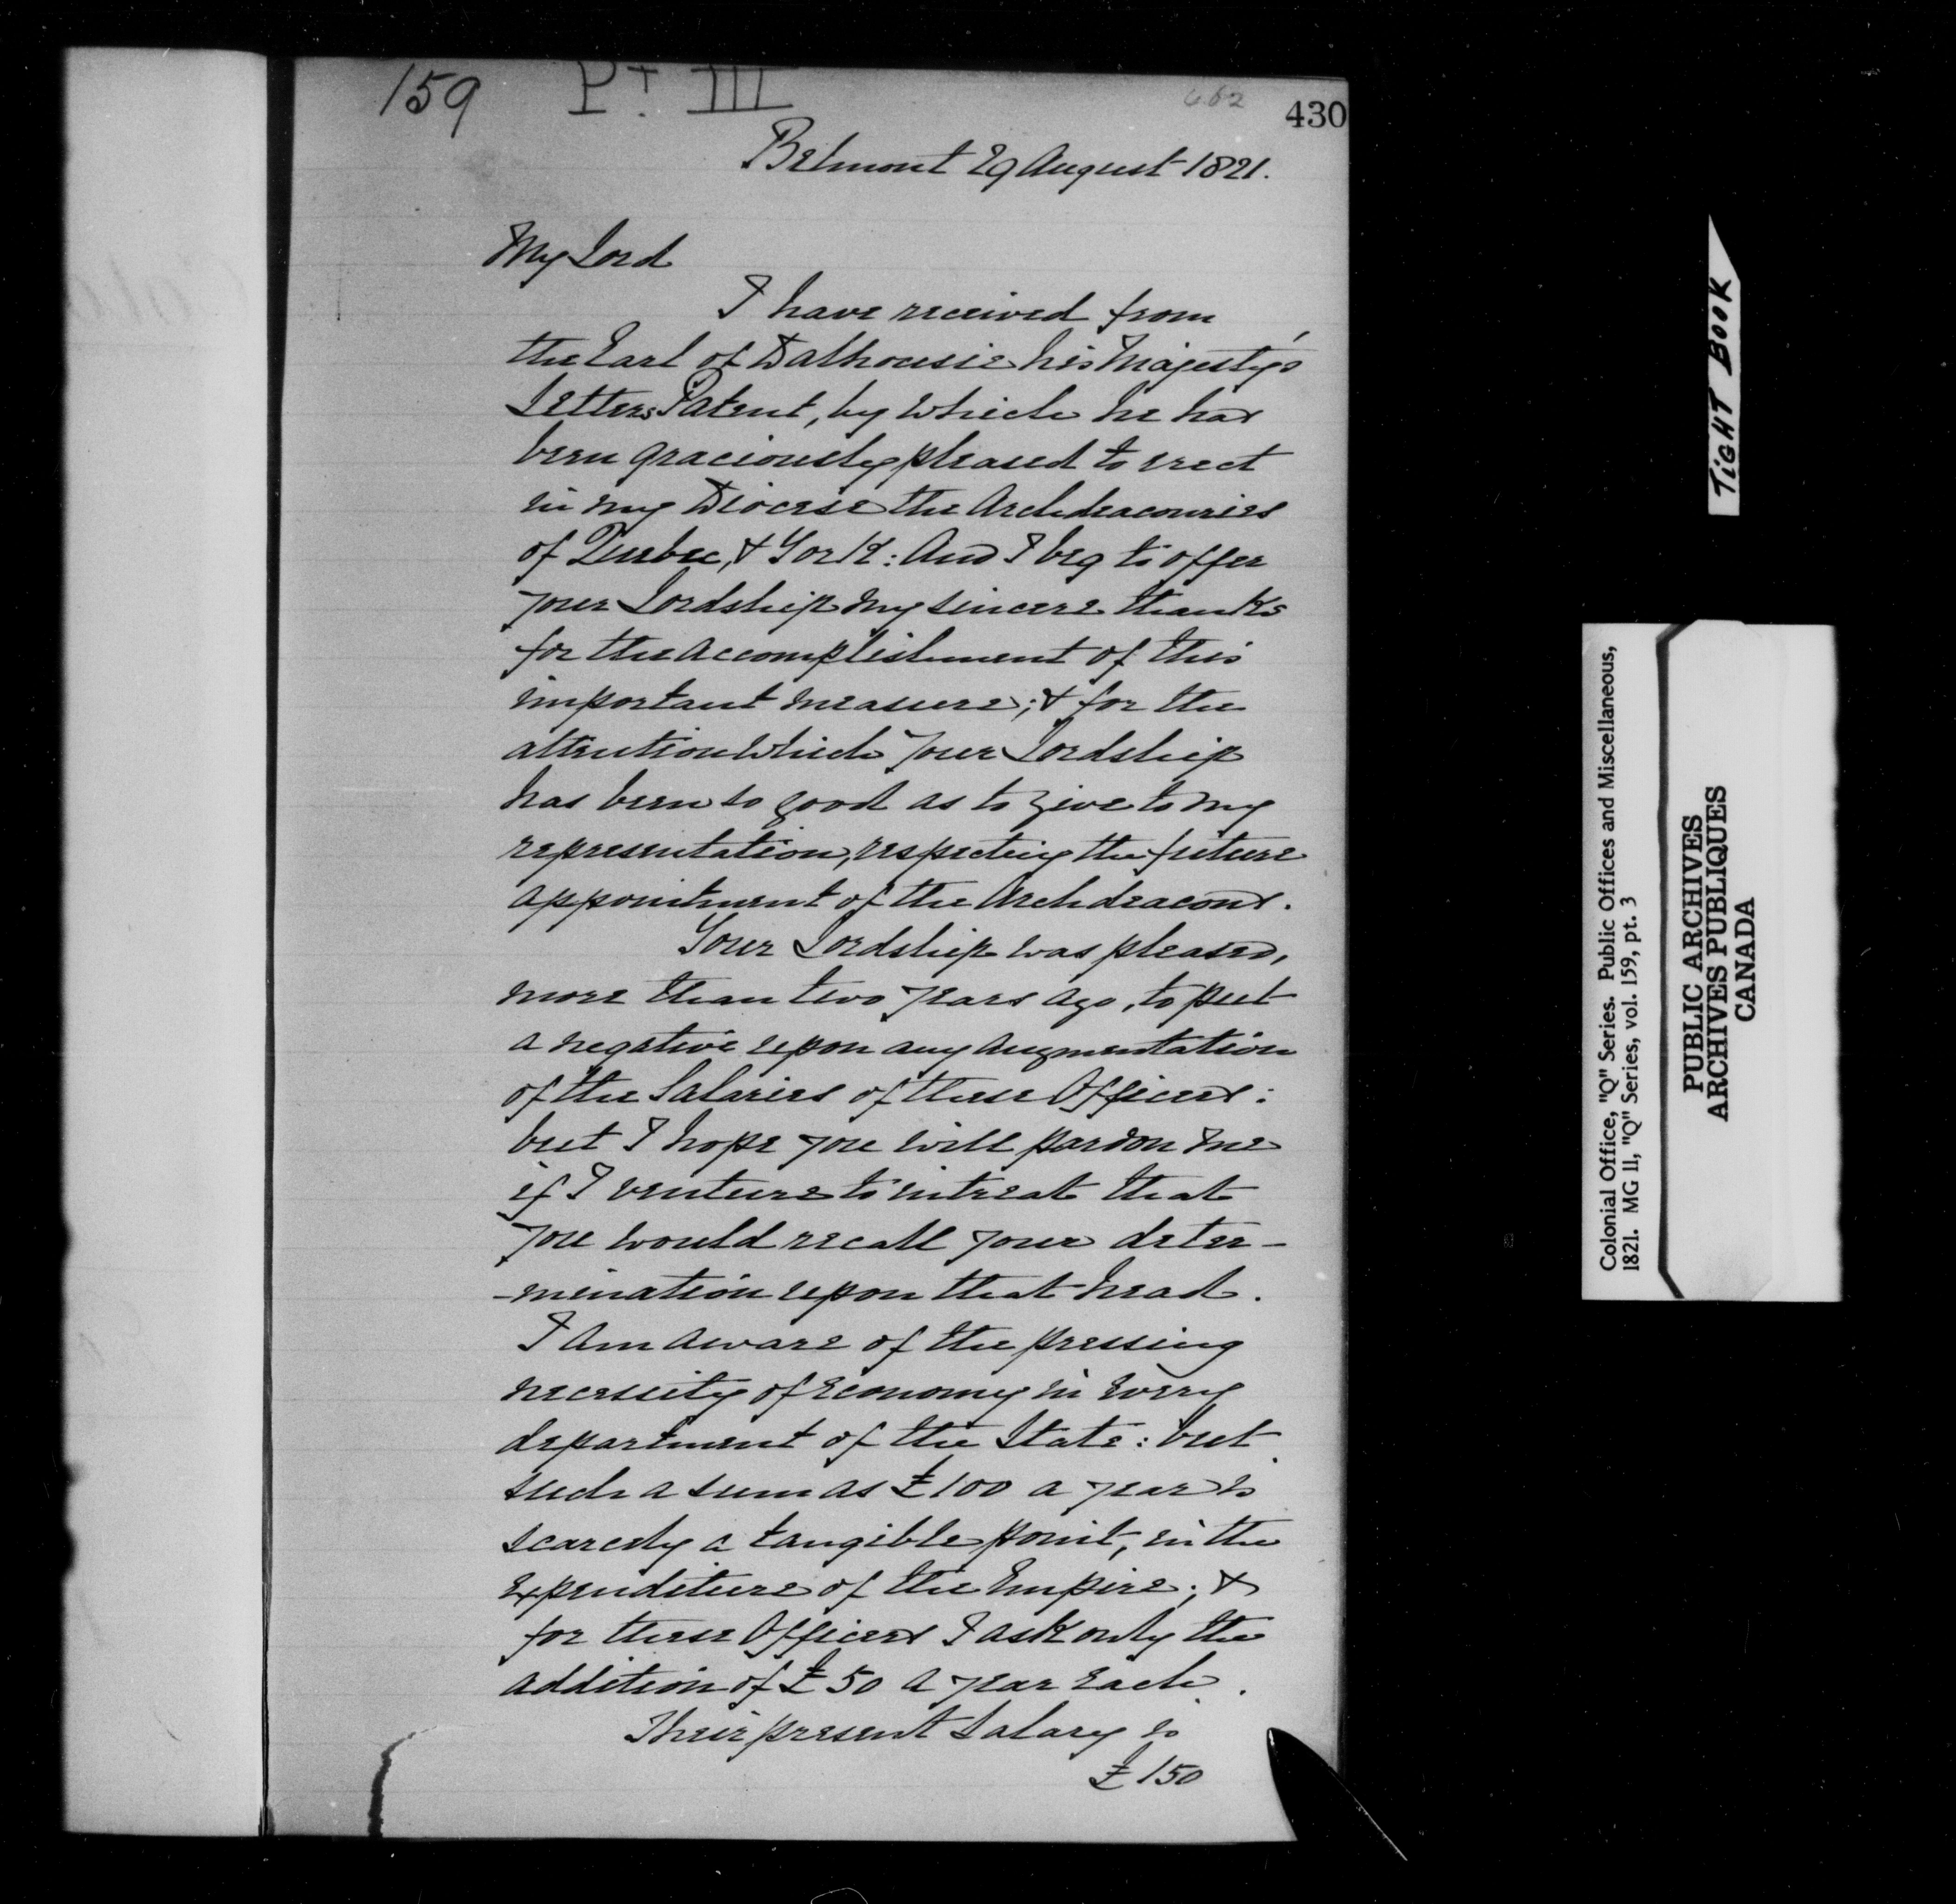 159 Pt. III 662 430
Belmont 29 August 1821.
My Lord
I have received from
the Earl of Dalhousie his Majesty's
Letters Patent, by which he has
been graciously pleased to erect
in my Diocese the Archdeaconries
of Quebec, & York: And I beg to offer
your Lordship my sincere thanks
for the accomplishment of this
important measure; & for the
attention which your Lordship
has been so good as to give to my
representation, respecting the future
appointment of the Archdeacons.
Your Lordship was pleased,
more than two years ago, to put
a negative upon any augmentation
of the Salaries of these Officers:
but I hope you will pardon me
if I venture to intreat that
you would recall your deter-
-mination upon that head.
I am aware of the pressing
necessity of economy in every
department of the State: but
such a sum as £100 a year is
scarcely a tangible point, in the
Expenditure of the Empire; &
for these Officers I ask only the
addition of £50 a year each.
Their present Salary is
£150
TIGHT BOOK
Colonial Office, "Q" Series. Public Offices and Miscellaneous,
1821. MG 11, "Q" Series, vol. 159, pt. 3
PUBLIC ARCHIVES
ARCHIVES PUBLIQUES
CANADA